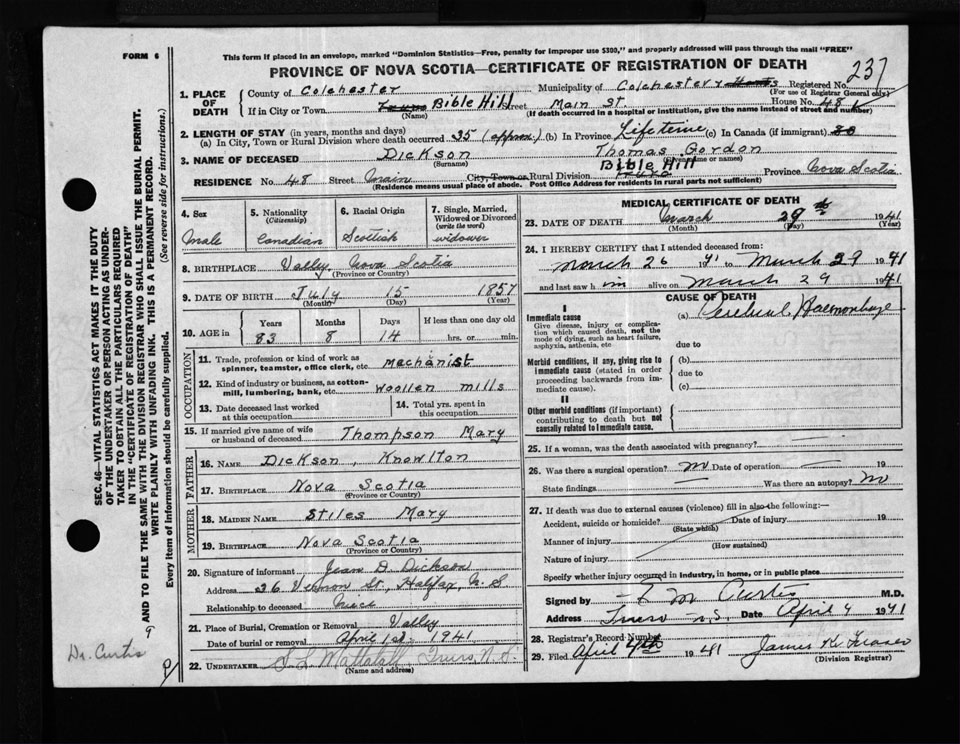 FORM 6
This form if placed in an envelope, marked "Dominion Statistics—Free, penalty for improper use $300," and properly addressed will pass through the mail "FREE"
PROVINCE OF NOVA SCOTIA—CERTIFICATE OF REGISTRATION OF DEATH
237
1. PLACE OF DEATH County of Colchester Municipality of Colchester Registered No.
(For use of Registrar General only)
If in City or Town Truro Bible Hill Street Main St House No. 48
(Name) (If death occurred in a hospital or institution, give the name instead of street and number)
2. LENGTH OF STAY (in years, months and days)
(a) In City, Town or Rural Division where death occurred 35 (approx) (b) In Province Lifetime (c) In Canada (if immigrant)
3. NAME OF DECEASED Dickson Thomas Gordon
(Surname) (Given name or names)
RESIDENCE No. 48 Street Main City, Town or Rural Division Truro Bible Hill Province Nova Scotia
(Residence means usual place of abode. Post Office Address for residents in rural parts not sufficient)
4. Sex 5. Nationality 6. Racial Origin 7. Single, Married,
(Citizenship) Widowed or Divorced
(write the word)
Male Canadian Scottish widower
8. BIRTHPLACE Valley, Nova Scotia
(Province or Country)
9. DATE OF BIRTH July 15 1857
(Month) (Day) (Year)
10. AGE in Years Months Days If less than one day old
83 8 14 hrs. or min.
OCCUPATION
11. Trade, profession or kind of work as
spinner, teamster, office clerk, etc. Machanist
12. Kind of industry or business, as cotton-
mill, lumbering, bank, etc. Woollen mills
13. Date deceased last worked
at this occupation
14. Total yrs. spent in
this occupation
15. If married give name of wife
or husband of deceased Thompson Mary
FATHER
16. NAME Dickson, Knowlton
17. BIRTHPLACE Nova Scotia
(Province or Country)
MOTHER
18. MAIDEN NAME Stiles Mary
19. BIRTHPLACE Nova Scotia
(Province or Country)
20. Signature of informant Jean D. Dickson
Address 26 Vernon St., Halifax, N. S
Relationship to deceased niece
21. Place of Burial, Cremation or Removal Valley
Date of burial or removal April 1st 1941
22. UNDERTAKER Mattatall, Truro, N. S.
(Name and address)
MEDICAL CERTIFICATE OF DEATH
23. DATE OF DEATH March 29th 1941
(Month) (Day) (Year)
24. I HEREBY CERTIFY that I attended deceased from:
March 26 1941 to March 29 1941
and last saw him alive on March 29 1941
CAUSE OF DEATH
I
Immediate cause
Give disease, injury or complica-
tion which caused death, not the
mode of dying, such as heart failure,
asphyxia, asthenia, etc
(a) Cerebral Haemorrhage
due to
Morbid conditions, if any, giving rise to
immediate cause (stated in order
proceeding backwards from im-
mediate cause).
(b)
due to
(c)
II
Other morbid conditions (if important)
contributing to death but not
causally related to immediate cause.
25. If a woman, was the death associated with pregnancy?
26. Was there a surgical operation? no Date of operation 19
State findings Was there an autopsy? no
27. If death was due to external causes (violence) fill in also the following:—
Accident, suicide or homicide? Date of injury 19
(State which)
Manner of injury
(How sustained)
Nature of injury
Specify whether injury occurred in industry, in home, or in public place
Signed by M Curtis M.D.
Address Truro N.S. Date April 4 1941
28. Registrar's Record Number
29. Filed April 4th 1941 James K. Fraser
(Division Registrar)
SEC. 46—VITAL STATISTICS ACT MAKES IT THE DUTY
OF THE UNDERTAKER OR PERSON ACTING AS UNDER-
TAKER TO OBTAIN ALL THE PARTICULARS REQUIRED
IN THE "CERTIFICATE OF REGISTRATION OF DEATH"
AND TO FILE THE SAME WITH THE DIVISION REGISTRAR WHO SHALL ISSUE THE BURIAL PERMIT.
WRITE PLAINLY WITH UNFADING INK. THIS IS A PERMANENT RECORD.
Every item of information should be carefully supplied. (See reverse side for instructions.)
9
Dr. Curtis